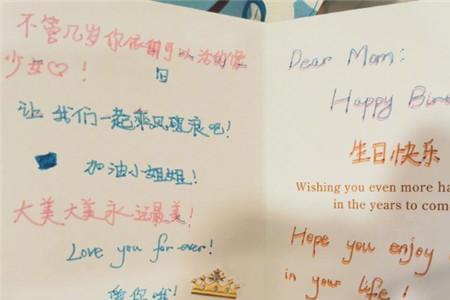 不管几岁你依旧可以活的像
少女♡！
让我们一起乘风破浪吧！
加油小姐姐！
大美大美永远最美！
Love you for ever！
Dear Mom:
Happy Birt
生日快乐
Wishing you even more ha
in the years to com
Hope you enjoy
in your life！